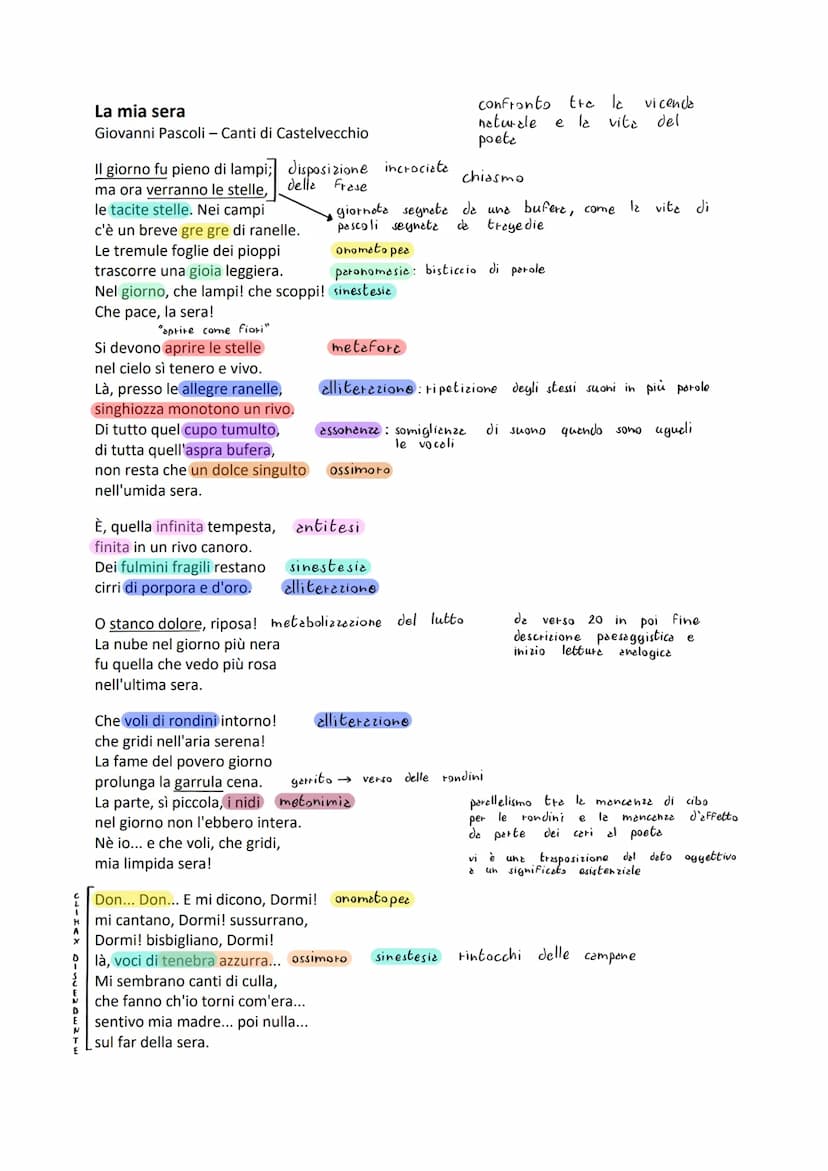 La mia sera
Giovanni Pascoli – Canti di Castelvecchio
confronto tra la vicenda
naturale e la vita del
poeta
Il giorno fu pieno di lampi;
ma ora verranno le stelle,
disposizione incrociata
della frase
chiasmo
le tacite stelle. Nei campi
c'è un breve gre gre di ranelle.
giornata segnata da una bufera, come la vita di
pascoli segnata da tragedie
Le tremule foglie dei pioppi onomatopea
trascorre una gioia leggiera. paronomasia: bisticcio di parole
Nel giorno, che lampi! che scoppi! sinestesia
Che pace, la sera!
"aprire come fiori"
Si devono aprire le stelle metafora
nel cielo sì tenero e vivo.
Là, presso le allegre ranelle, alliterazione: ripetizione degli stessi suoni in più parole
singhiozza monotono un rivo.
Di tutto quel cupo tumulto, assonanza: somiglianza di suono quando sono uguali
le vocali
di tutta quell'aspra bufera,
non resta che un dolce singulto ossimoro
nell'umida sera.
È, quella infinita tempesta, antitesi
finita in un rivo canoro.
Dei fulmini fragili restano sinestesia
cirri di porpora e d'oro. alliterazione
O stanco dolore, riposa! metabolizzazione del lutto
La nube nel giorno più nera
fu quella che vedo più rosa
nell'ultima sera.
da verso 20 in poi fine
descrizione paesaggistica e
inizio lettura analogica
Che voli di rondini intorno! alliterazione
che gridi nell'aria serena!
La fame del povero giorno
prolunga la garrula cena. garrito → verso delle rondini
La parte, sì piccola, i nidi metonimia
nel giorno non l'ebbero intera.
Nè io... e che voli, che gridi,
mia limpida sera!
parallelismo tra la mancanza di cibo
per le rondini e la mancanza d'affetto
da parte dei cari al poeta
vi è una trasposizione del dato oggettivo
a un significato esistenziale
CLIMAX DISCENDENTE
Don... Don... E mi dicono, Dormi! onomatopea
mi cantano, Dormi! sussurrano,
Dormi! bisbigliano, Dormi!
là, voci di tenebra azzurra... ossimoro sinestesia rintocchi delle campane
Mi sembrano canti di culla,
che fanno ch'io torni com'era...
sentivo mia madre... poi nulla...
sul far della sera.